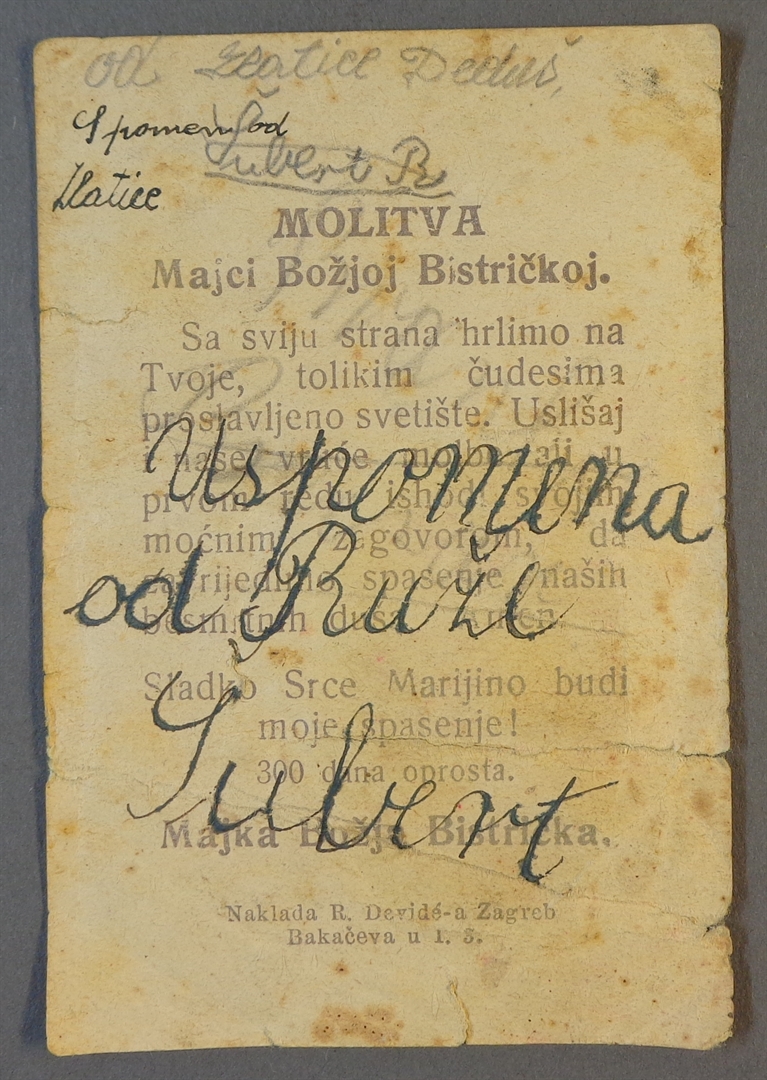 od Zlatice Deduš,
Spomen od
Šubert R
Zlatice
MOLITVA
Majci Božjoj Bistričkoj.
Sa sviju strana hrlimo na
Tvoje, tolikim čudesima
proslavljeno svetište. Uslišaj
i naše vruće molbe, ali u
Uspomena
prvom redu ishodi svojim
moćnim zagovorom, da
zavrijedimo spasenje naših
od Ruže
besmrtnih duša. Amen.
Sladko Srce Marijino budi
moje spasenje!
300 dana oprosta.
Šubert
Majka Božja Bistrička.
Naklada R. Devidé-a Zagreb
Bakačeva u 1. 3.